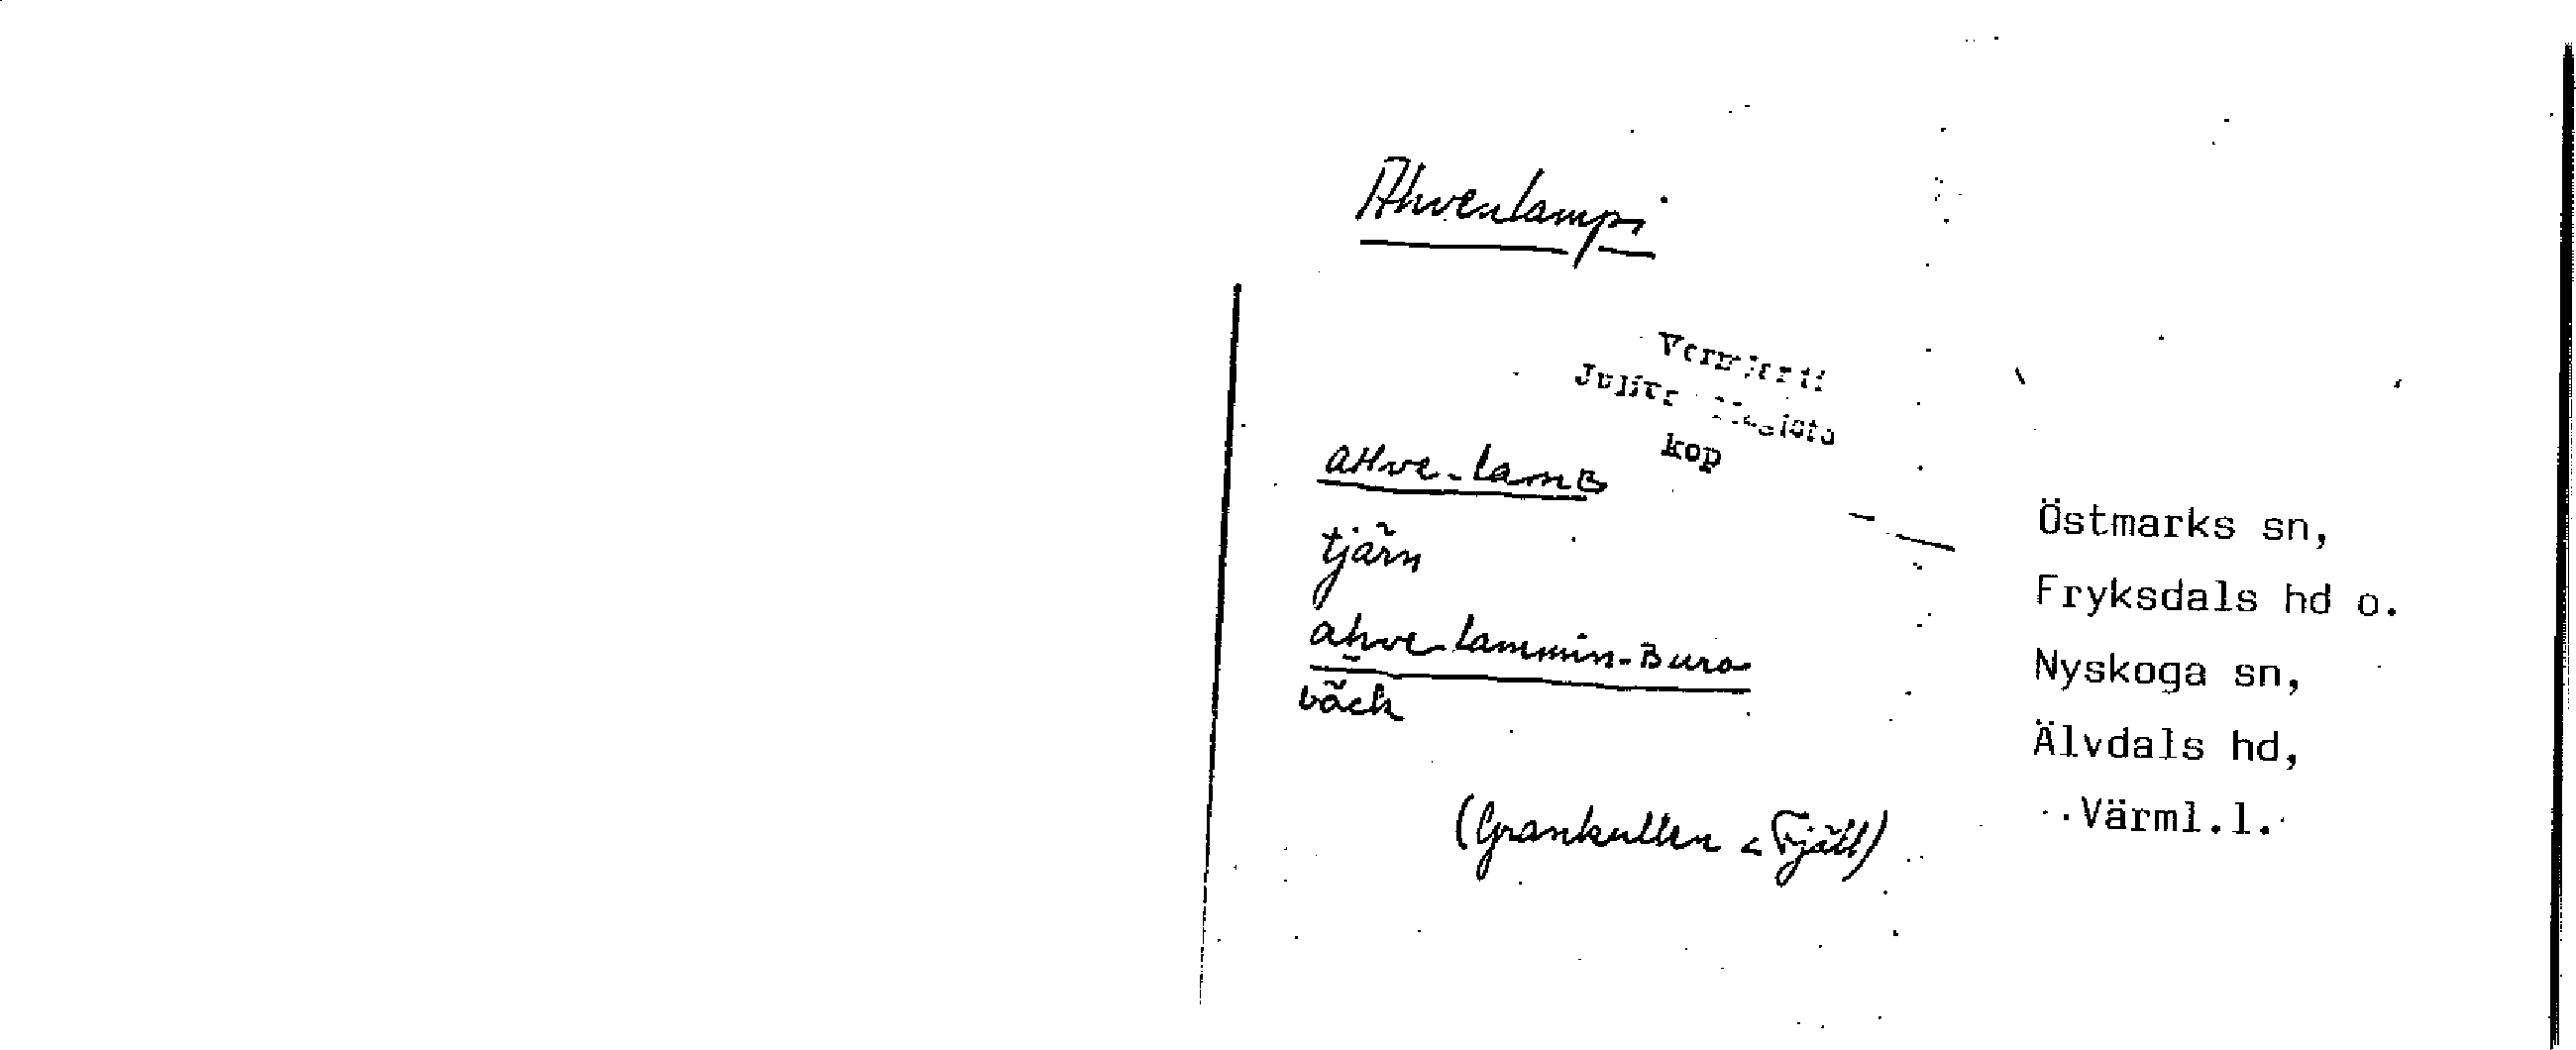 Ahvenlampi
Julius
kop
aHve-lamB
tjärn
ahve-lammin-Buro
bäck
(Grankullen < Fjäll)
Östmarks sn,
Fryksdals hd o.
Nyskoga sn,
Älvdals hd,
Värml.l.